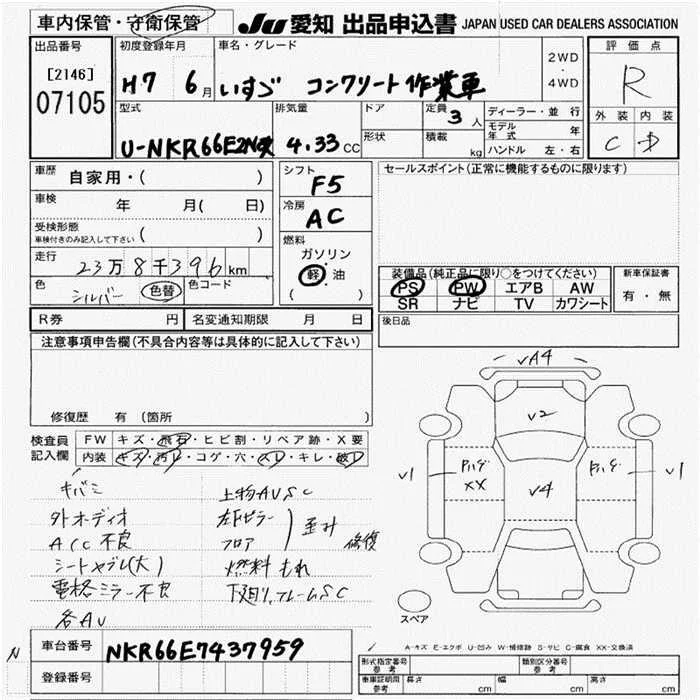 車内保管・守衛保管
JU 愛知 出品申込書 JAPAN USED CAR DEALERS ASSOCIATION
出品番号
[2146]
07105
初度登録年月
H7 6月
車名・グレード
いすゞ コンクリート作業車
2WD
・
4WD
評価点
R
外装 内装
C D
型式
U-NKR66E2N改
排気量
4.33 CC
ドア
形状
定員 3 人
積載 kg
ディーラー・並行
モデル年式 年
ハンドル 左・右
車歴 自家用・( )
車検 年 月( 日)
受検形態
車検付きのみ記入して下さい ( )
走行 23万8千396km
色 シルバー 色替 色コード
シフト
F5
冷房
AC
燃料
ガソリン
・
軽・油
( )
セールスポイント(正常に機能するものに限ります)
装備品(純正品に限り○をつけてください)
PS PW エアB AW
SR ナビ TV カワシート
新車保証書
有・無
R券 円 名変通知期限 月 日
後日品
注意事項申告欄(不具合内容等は具体的に記入して下さい)
修復歴 有(箇所 )
検査員記入欄
FW キズ・飛石・ヒビ割・リペア跡・X要
内装 キズ・汚レ・コゲ・穴・スレ・キレ・破レ
キバミ
上物AUSC
外オーディオ
左Fピラー
A/C不良
フロア
歪み 修復
シートヤブレ(大)
燃料もれ
電格ミラー不良
下廻り、フレームSC
各AU
√A4
√2
√1
XX
√4
√1
スペア
A-キズ E-エクボ U-凹み W-補修跡 S-サビ C-腐食 XX-交換済
N
車台番号 NKR66E7437959
登録番号
形式指定番号 参考
類別区分番号 参考
車庫証明用 参考 長さ cm 幅 cm 高さ cm